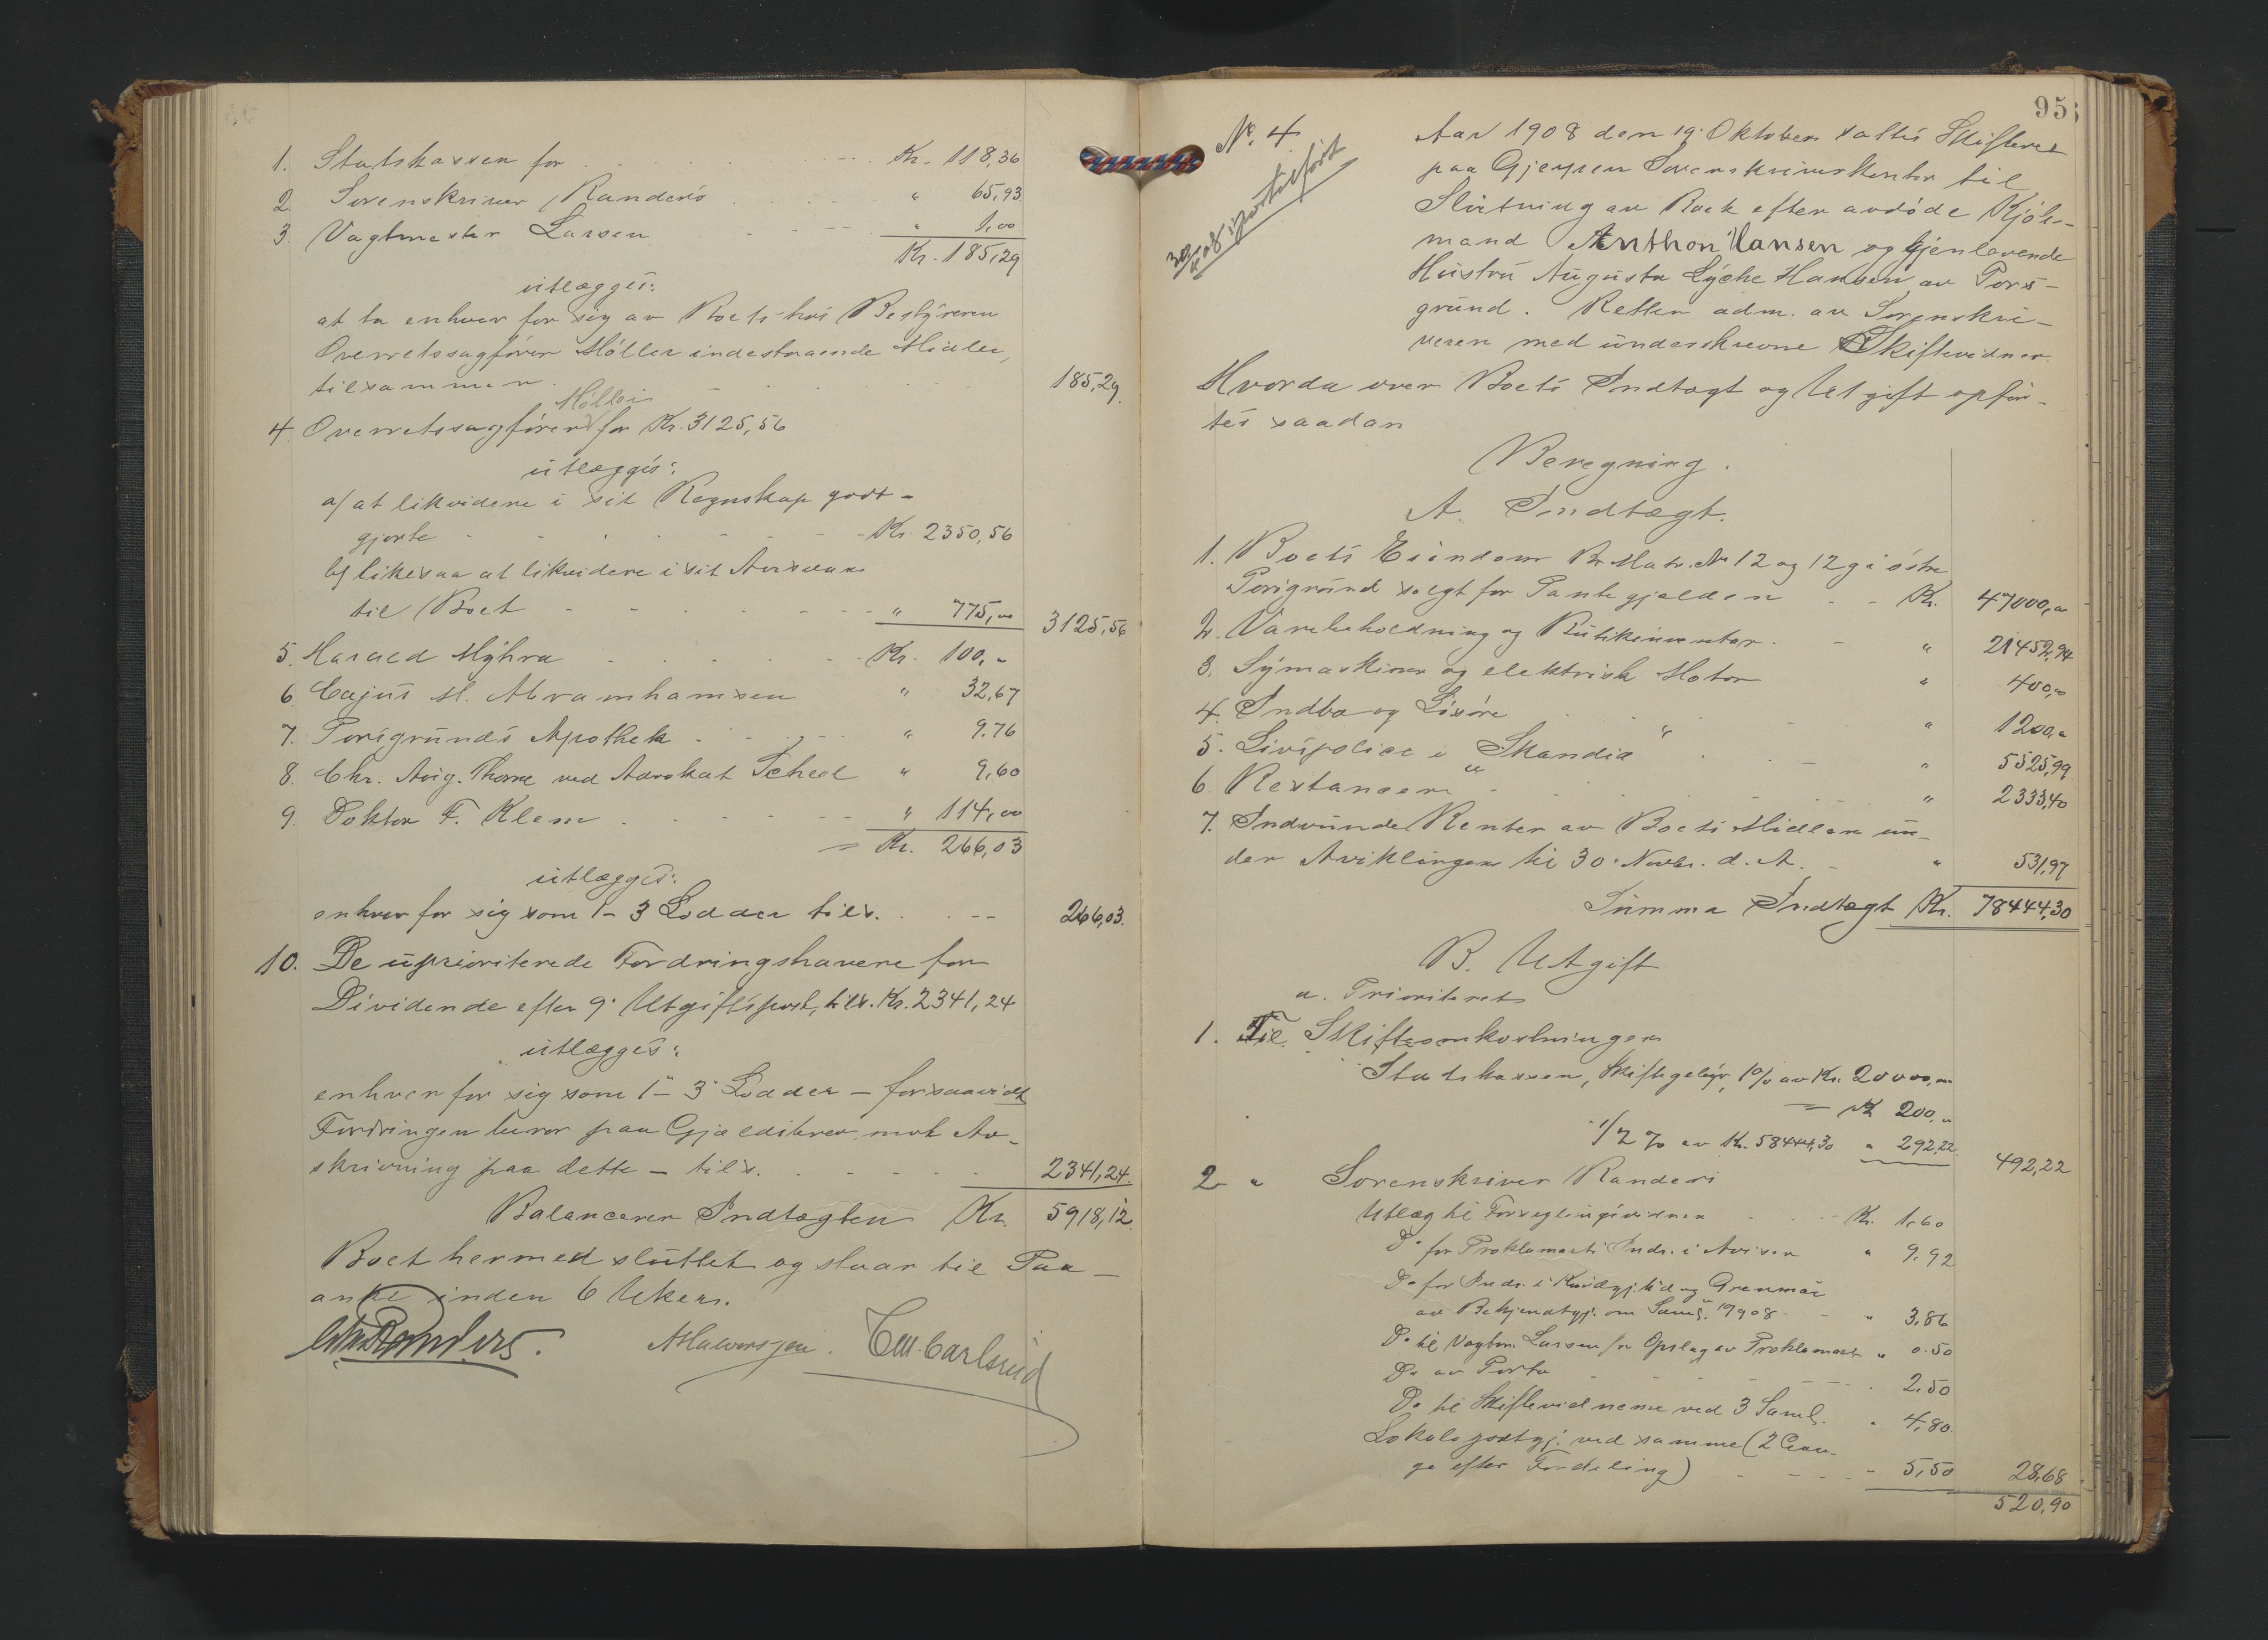 1. Statskassen for Kr. 118,36
2. Sorenskriver Randers " 65,93
3. Vagtmester Larsen " 1,00
Kr. 185,29
utlægges:
at ta enhver for sig av Boets hos Bestyreren
Overretssagfører Møller indestaaende Midler,
tilsammen 185,29.
Møller
4. Overretssagfører for Kr. 3125,56
utlægges:
a/ at likvidere i sit Regnskap godt-
gjorte Kr. 2350,56
b/ likesaa at likvidere i sit Ansvar
til Boet " 775,00 3125,56
5. Harald Myhra Kr. 100,-
6. Cajus M. Abramhamsen " 32,67
7. Porsgrunds Apothek " 9.76
8. Chr. Aug. Thorne ved Advokat Scheel " 9,60
9. Doktor F. Klem " 114,00
= Kr. 266,03
utlægges:
enhver for sig som 1-3 Lodder tils. 266,03.
10. De uprioriterede Fordringshavere for
Dividende efter 9. Utgiftspost, tils. Kr. 2341,24
utlægges:
enhver for sig som 1"- 3" Lodder - forsaavidt
Fordringen beror paa Gjældsbrev mot Av-
skrivning paa dette - tils. 2341,24.
Balancerer Indtægten Kr. 5918,12.
Boet hermed sluttet og staar til Paa-
anke inden 6 Uker.
Randers. A Halvorsen. C.M. Carlsrud
95
No. 4
Aar 1908 den 19. Oktober sattes Skifteret
paa Gjerpen Sorenskriverkontor til
Slutning av Boet efter avdøde Kjøb-
mand Anthon Hansen og gjenlevende
Hustru Augusta Lycke Hansen av Pors-
grund. Retten adm. av Sorenskri-
veren med underskrevne Skiftevidner.
Hvorda over Boets Indtægt og Utgift opfør-
tes saadan
Beregning.
A. Indtægt.
1. Boets Eiendom Br. Matr. Nr 12 og 12 g i østre
Porsgrund solgt for Pantegjælden Kr. 47000,00
2. Varebeholdning og Butikinventar " 21452,94
3. Symaskiner og elektrisk Motor " 400,00
4. Indbo og Løsøre " 1200,00
5. Livspolice i "Skandia" " 5525,99
6. Restancer " 2333,40
7. Indvundne Renter av Boets Midler un-
der Aviklingen til 30. Novbr. d. A. " 531,97
Summa Indtægt Kr. 78444,30
B. Utgift
a. Prioritert
1. Til Skifteomkostninger
Statskassen, Skiftegebyr, 1% av Kr. 20000,00
= Kr. 200,00
1/2 % av Kr. 58444,30 " 292,22. 492,22
2 " Sorenskriver Randers
Utlæg til Forseglingsvidner Kr. 1,60
Do for Proklamaets Indr. i Aviser " 9.92
Do for Indr. i Kundgj.tid og Grenmar
av Bekjendtgj. om Saml. 1908 " 3,86
Do til Vagtm. Larsen for Opslag av Proklamaet " 0.50
Do av Porto 2,50
Do til Skiftevidnerne ved 3 Saml. " 4,80
Lokalegodtgj. ved samme (2 Gan-
ge efter Fordeling) " 5,50 28,68
520,90